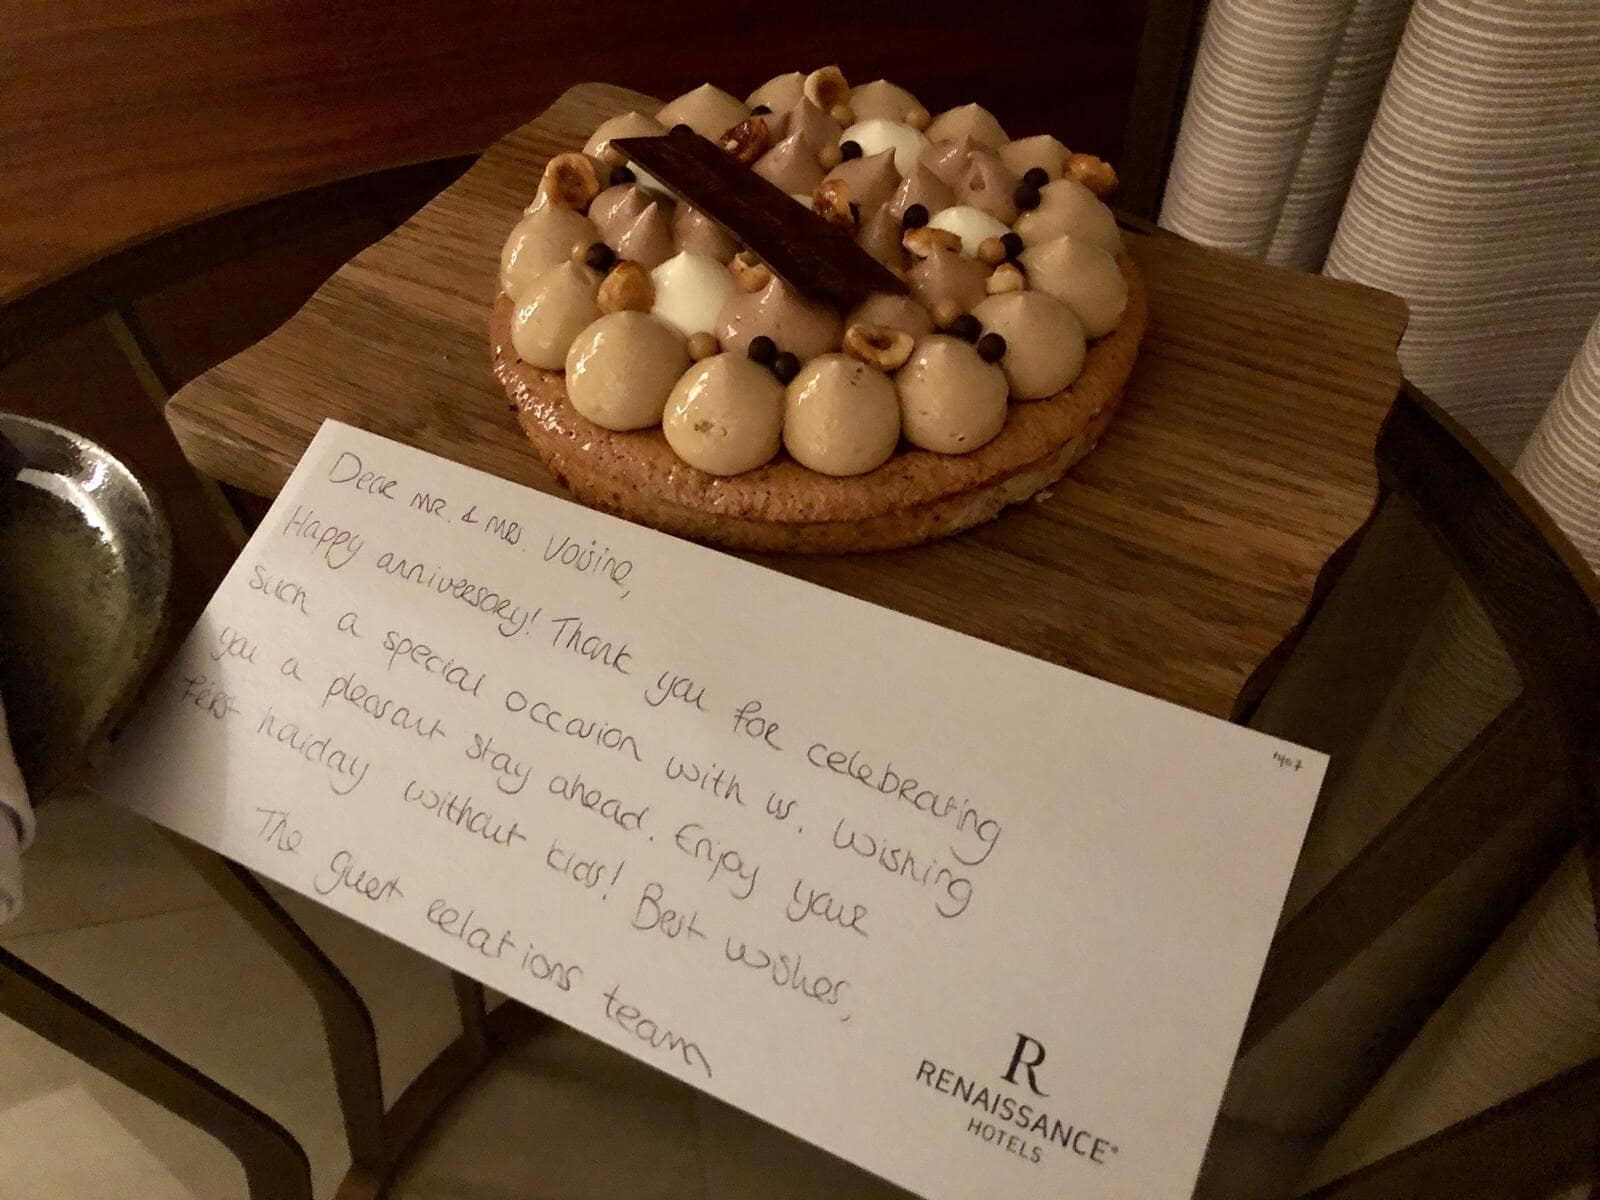 Dear Mr. & Mrs. Voisine,
Happy anniversary! Thank you for celebrating
such a special occasion with us. Wishing
you a pleasant stay ahead. Enjoy your
first holiday without kids! Best wishes,
The guest relations team
1407
R
RENAISSANCE®
HOTELS